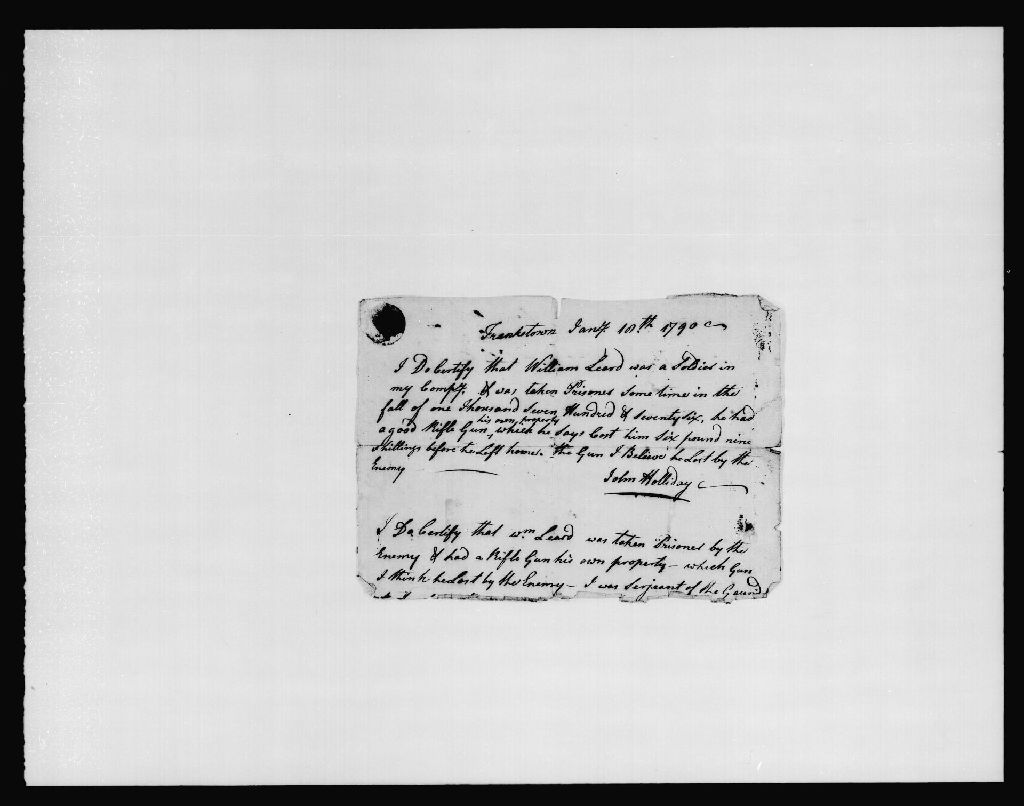 Frankstown Jany 18th 1790
I Do Certify that William Leard was a Soldier in
my Compy. & was taken Prisoner Some time in the
fall of one Thousand Seven Hundred & Seventy Six, he had
his own property
a good Rifle Gun, which he Says Cost him Six pound nine
Shillings before he Left home. the Gun I Believe he Lost by the
Enemy
John Holliday
I Do Certify that Wm Leard was taken Prisoner by the
Enemy & had a Rifle Gun his own property - which Gun
I think he Lost by the Enemy - I was Serjeant of the Gaurd